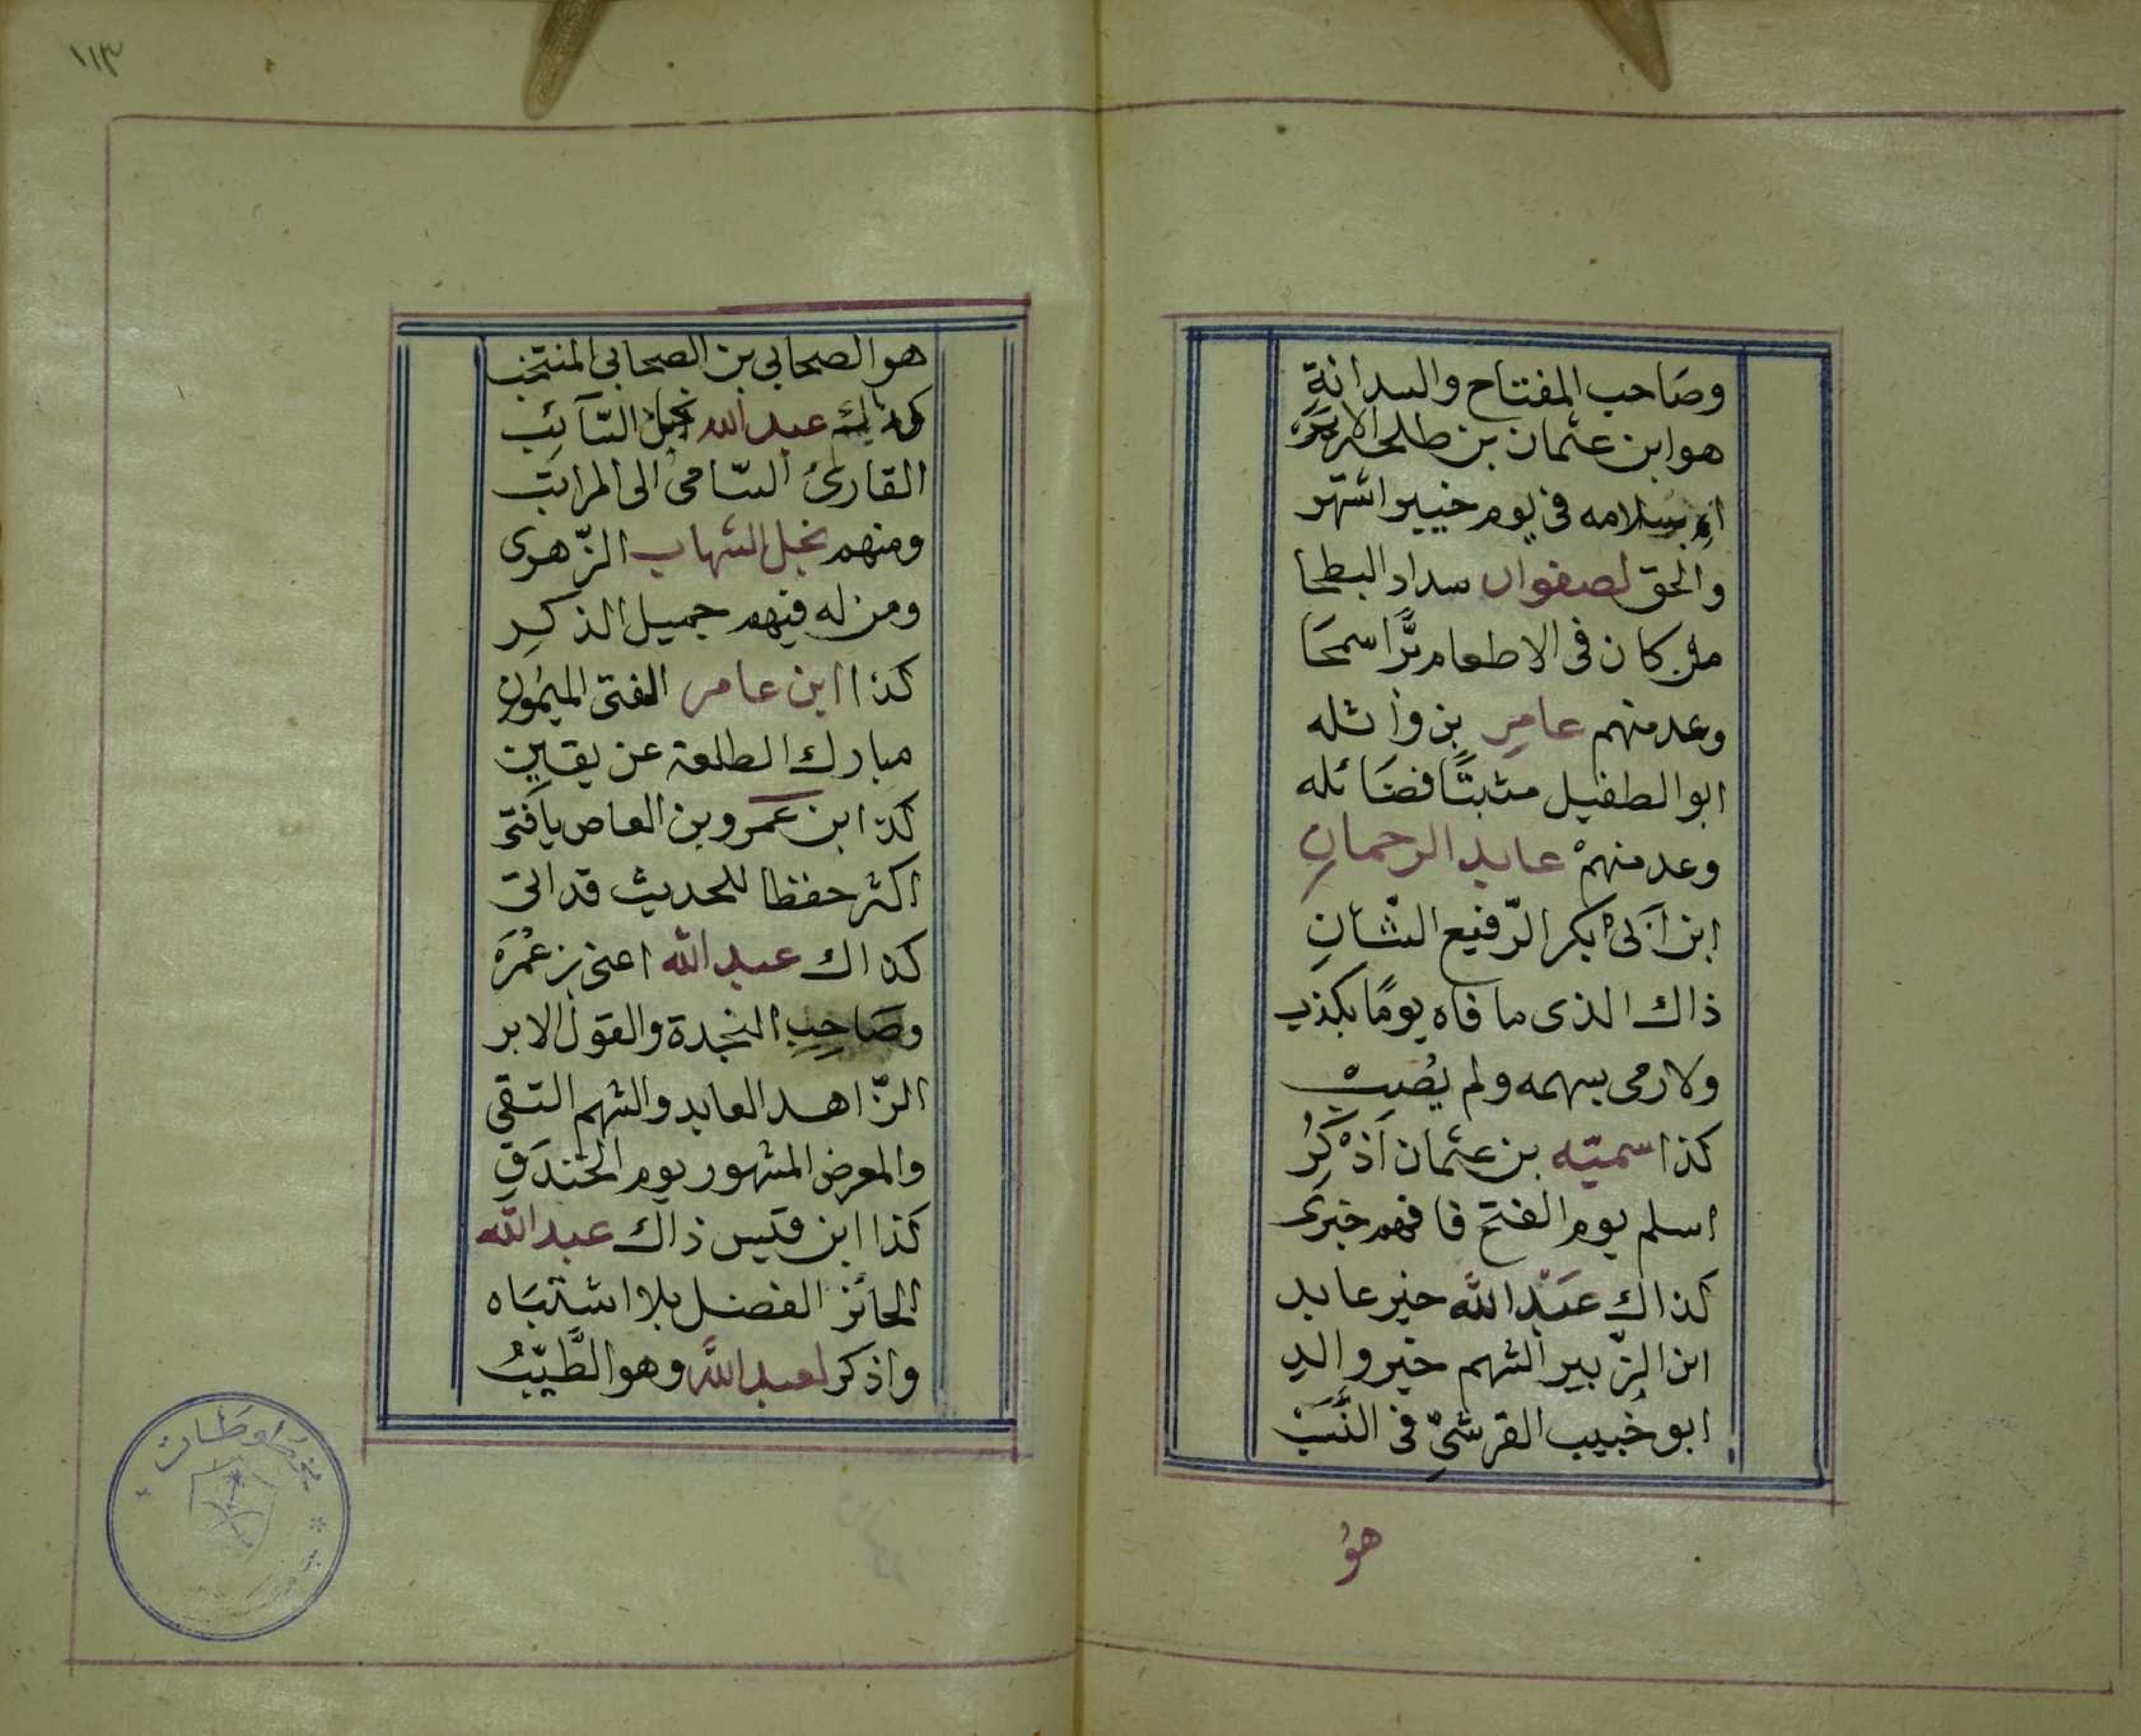 وصَاحب المفتاح والسدانةِ
هو ابن عثمان بن طلحه
اسلامه فى يوم خيبر اشتهر
والحق لصفوان سداد البطحا
من كان فى الاطعام برًّا سمحَا
وعد منهم عامرِ بن واثله
ابو الطفيل مثبتًا فضَائله
وعد منهمْ عابد الرحمانِ
ابن اَبى بكر الرّفيع الشّانِ
ذاك الذى ما فاه يومًا بكذب
ولا رمى بسهمه ولم يُصِبْ
كذا سميّه بن عثمان اَذْكُرُ
اسلم يوم الفتح فافهم خبرى
كذاك عبْد الله خير عابد
ابن الزّبير الشهم خير والد
ابو خُبيب القرشىِّ فى النَّسَبْ
هوُ
١١٣
هو الصحابي بن الصحابي المنتخب
كذلك عبد الله نجل السّآئِب
القارئ السّامى الى المراتب
ومنهم نجل الشهاب الزّهرى
ومن له فيهم جميل الذكرِ
كذا ابن عامر الفتى الميمون
مبارك الطلعة عن يقينِ
كذا ابن عَمرو بن العاص يا فتى
اكثر حفظا للحديث قد اتى
كذاك عبد الله اعنى بن عُمَرَ
وصَاحِبِ النجدة والقول الابر
الزّاهد العابد والشهم التقى
والمعرض المشهور يوم الخندَقِ
كذا ابن قيس ذاك عبد الله
الحائز الفضل بلا اشتبَاه
واذكر لعبد اللهِ وهو الطَّيّبُ
مخطوطات